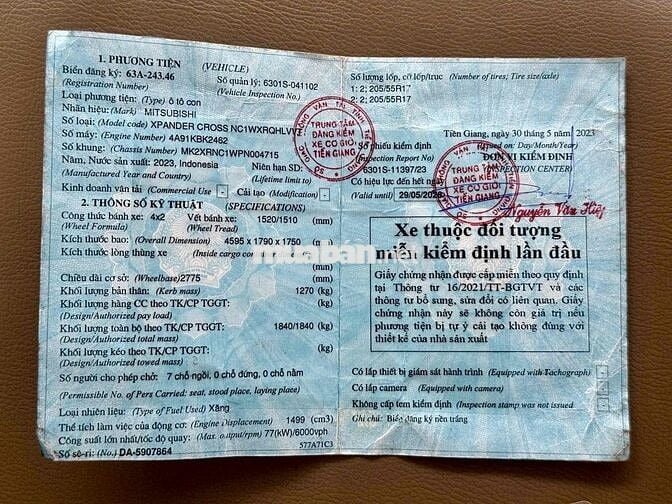 1. PHƯƠNG TIỆN (VEHICLE)
Biển đăng ký: 63A-243.46 Số quản lý: 6301S-041102
(Registration Number) (Vehicle Inspection No.)
Loại phương tiện: (Type) ô tô con
Nhãn hiệu: (Mark) MITSUBISHI
Số loại: (Model code) XPANDER CROSS NC1WXRQHLVVT
Số máy: (Engine Number) 4A91KBK2462
Số khung: (Chassis Number) MK2XRNC1WPN004715
Năm, Nước sản xuất: 2023, Indonesia Niên hạn SD:
(Manufactured Year and Country) (Lifetime limit to)
Kinh doanh vận tải (Commercial Use) - Cải tạo (Modification) -
2. THÔNG SỐ KỸ THUẬT (SPECIFICATIONS)
Công thức bánh xe: 4x2 Vết bánh xe: 1520/1510 (mm)
(Wheel Formula) (Wheel Tread)
Kích thước bao: (Overall Dimension) 4595 x 1790 x 1750 (mm)
Kích thước lòng thùng xe (Inside cargo (mm)
Chiều dài cơ sở: (Wheelbase) 2775 (mm)
Khối lượng bản thân: (Kerb mass) 1270 (kg)
Khối lượng hàng CC theo TK/CP TGGT: (kg)
(Design/Authorized pay load)
Khối lượng toàn bộ theo TK/CP TGGT: 1840/1840 (kg)
(Design/Authorized total mass)
Khối lượng kéo theo TK/CP TGGT: (kg)
(Design/Authorized towed mass)
Số người cho phép chở: 7 chỗ ngồi, 0 chỗ đứng, 0 chỗ nằm
(Permissible No. of Pers Carried: seat, stood place, laying place)
Loại nhiên liệu: (Type of Fuel Used) Xăng
Thể tích làm việc của động cơ: (Engine Displacement) 1499 (cm3)
Công suất lớn nhất/tốc độ quay: (Max. output/rpm) 77(kW)/6000vph
Số sê-ri: (No.) DA-5907864 577A71C3
Số lượng lốp, cỡ lốp/trục (Number of tires; Tire size/axle)
1: 2; 205/55R17
2: 2; 205/55R17
Tiền Giang, ngày 30 tháng 5 năm 2023
(Issued on: Day/Month/Year)
Số phiếu kiểm định ĐƠN VỊ KIỂM ĐỊNH
(Inspection Report No) (INSPECTION CENTER)
6301S-11397/23
Có hiệu lực đến hết ngày
(Valid until) 29/05/2026
TRUNG TÂM
ĐĂNG KIỂM
XE CƠ GIỚI
TIỀN GIANG
TRUNG TÂM
ĐĂNG KIỂM
XE CƠ GIỚI
TIỀN GIANG
Nguyễn Văn Hiệp
Xe thuộc đối tượng
miễn kiểm định lần đầu
Giấy chứng nhận được cấp miễn theo quy định
tại Thông tư 16/2021/TT-BGTVT và các
thông tư bổ sung, sửa đổi có liên quan. Giấy
chứng nhận này sẽ không còn giá trị nếu
phương tiện bị tự ý cải tạo không đúng với
thiết kế của nhà sản xuất
Có lắp thiết bị giám sát hành trình (Equipped with Tachograph)
Có lắp camera (Equipped with camera)
Không cấp tem kiểm định (Inspection stamp was not issued)
Ghi chú: Biển đăng ký nền trắng